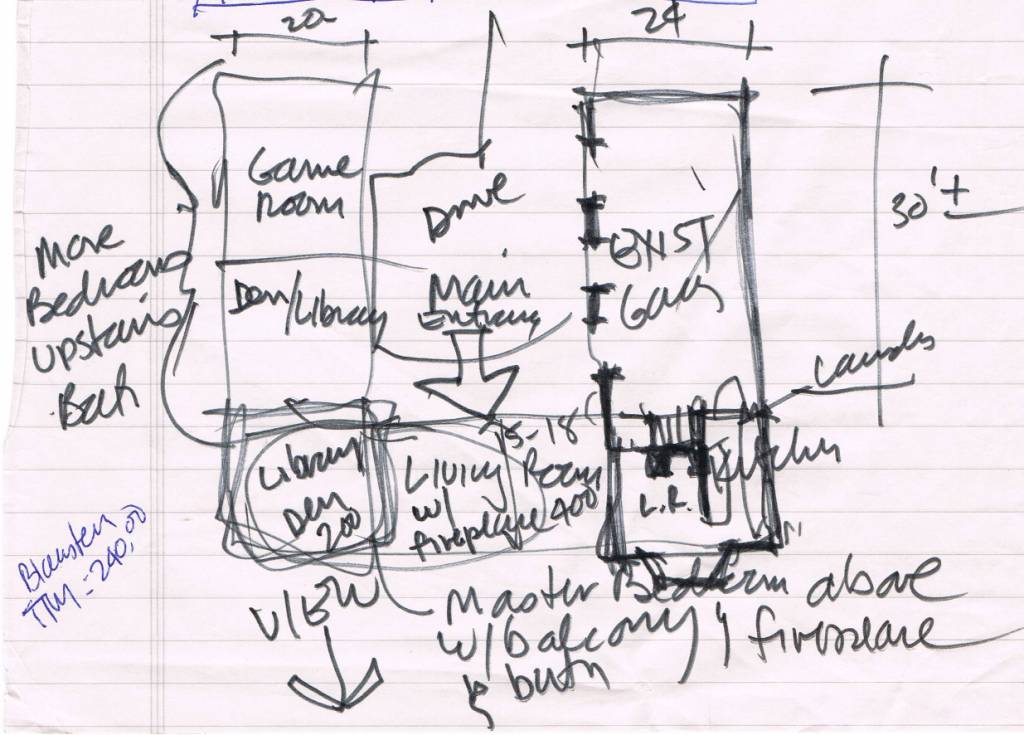 20
24
Game
Room
Drive
30'+
EXIST
More
Bedrooms
upstairs
Bath
Den/Library
Main
Entry
15-18'
Library
Den
200
Living Room
w/
fireplace 400
L.R.
Kitchen
VIEW
Master Bedrm above
w/balcony & fireplace
& bath
TTM -240,00